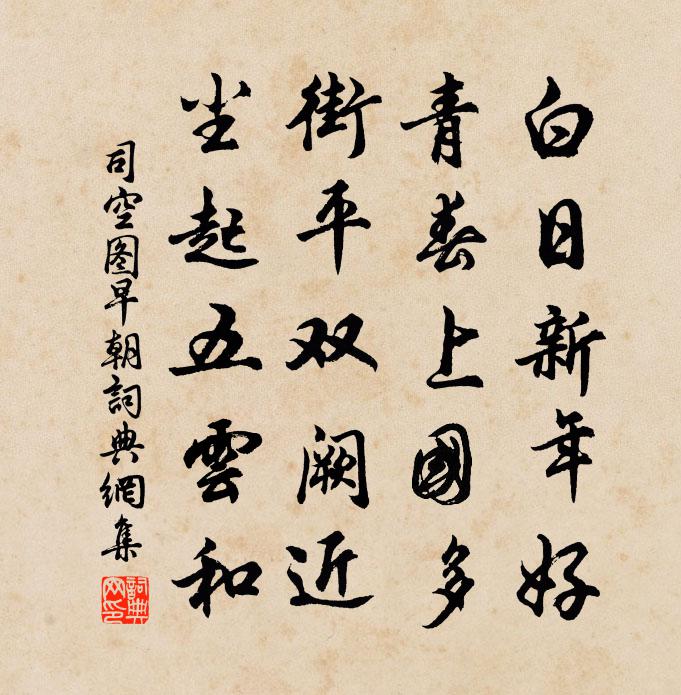 白日新年好
青春上國多
街平双阙近
尘起五雲和
司空图早朝詞典網集
詞典网印